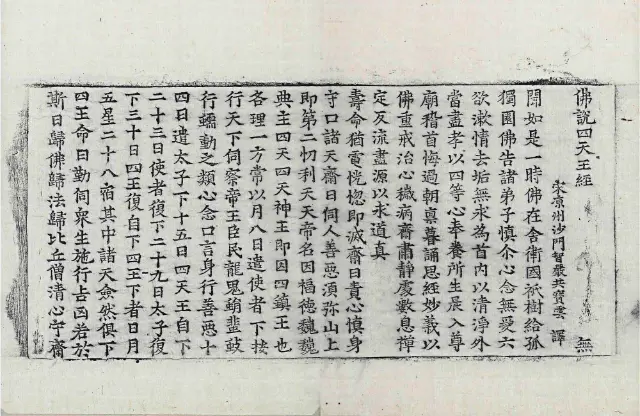 佛說四天王經　無
宋涼州沙門智嚴共寶雲　譯
聞如是一時佛在舍衛國祇樹給孤
獨園佛告諸弟子慎尒心念無愛六
欲漱情去垢無求為首內以清淨外
當盡孝以四等心奉養所生晨入尊
廟稽首悔過朝稟暮誦思經妙義以
佛重戒治心穢病齋肅靜處數息禪
定反流盡源以求道真
壽命猶電恍惚即滅齋日責心慎身
守口諸天齋日伺人善惡須弥山上
即第二忉利天天帝名因福德巍巍
典主四天四天神王即因四鎮王也
各理一方常以月八日遣使者下按
行天下伺察帝王臣民龍鬼蜎蜚蚑
行蠕動之類心念口言身行善惡十
四日遣太子下十五日四天王自下
二十三日使者復下二十九日太子復
下三十日四王復自下四王下者日月
五星二十八宿其中諸天僉然俱下
四王命曰勤伺衆生施行吉凶若於
斯日歸佛歸法歸比丘僧清心守齋